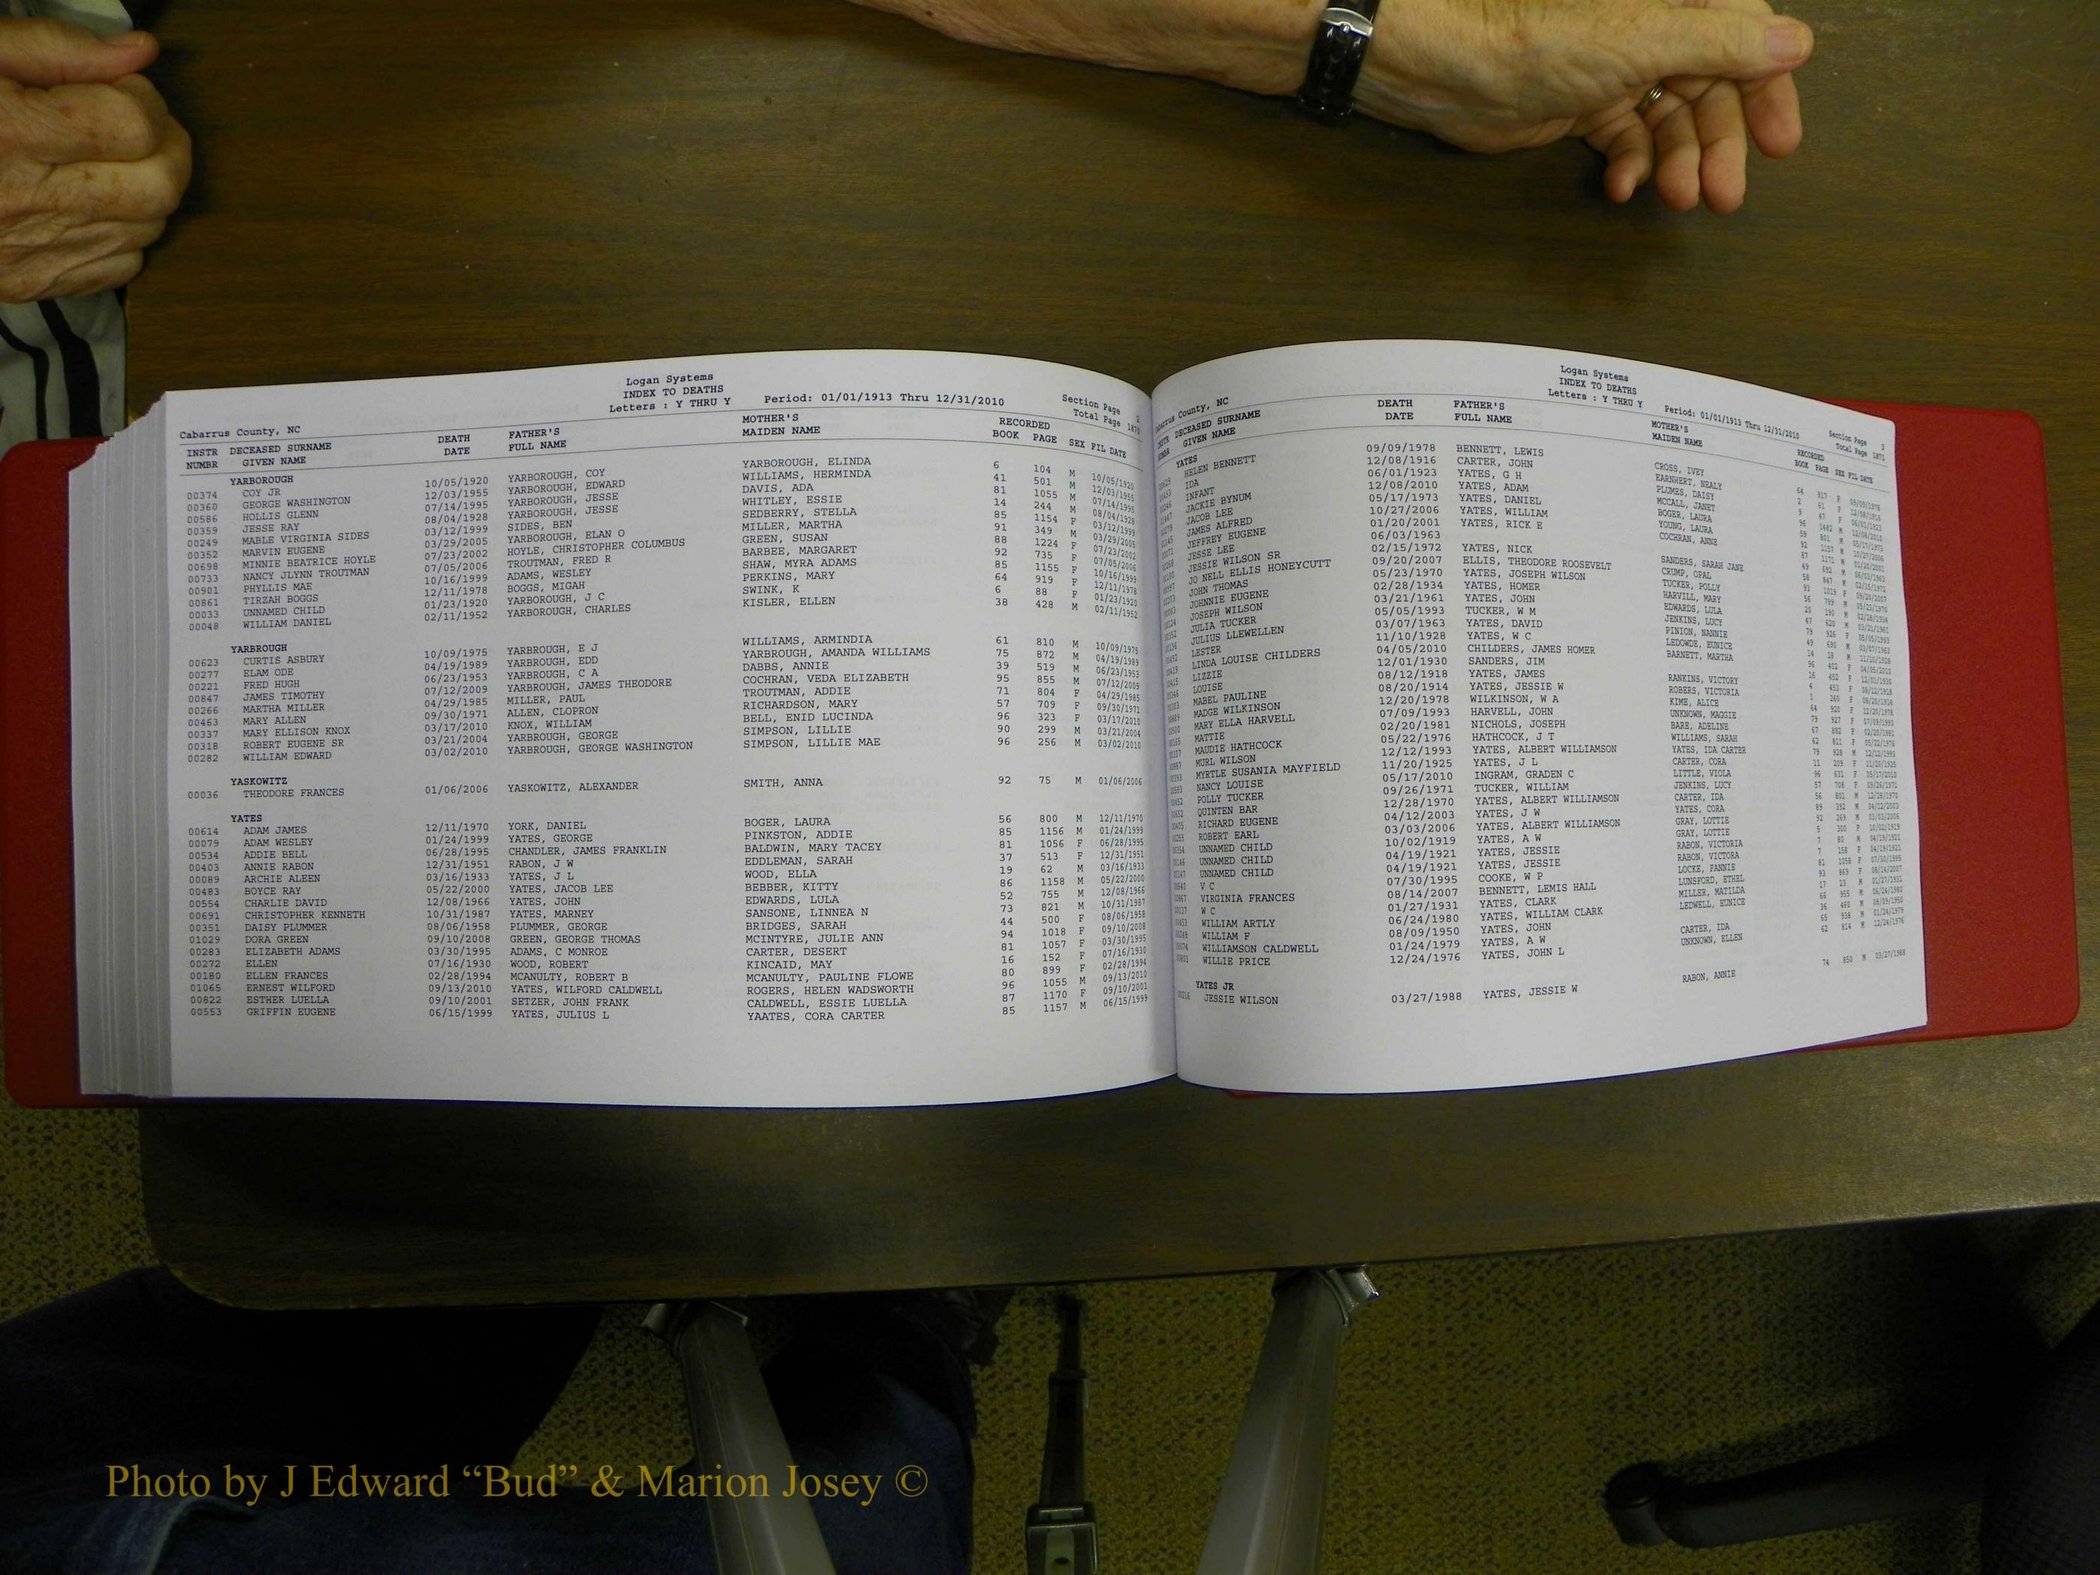 Logan Systems
INDEX TO DEATHS
Letters : Y THRU Y Period: 01/01/1913 Thru 12/31/2010
Section Page 2
Total Page 1870
Cabarrus County, NC
INSTR DECEASED SURNAME DEATH FATHER'S MOTHER'S RECORDED
NUMBR GIVEN NAME DATE FULL NAME MAIDEN NAME BOOK PAGE SEX FIL DATE
YARBOROUGH
00374 COY JR 10/05/1920 YARBOROUGH, COY YARBOROUGH, ELINDA 6 104 M 10/05/1920
00360 GEORGE WASHINGTON 12/03/1955 YARBOROUGH, EDWARD WILLIAMS, HERMINDA 41 501 M 12/03/1955
00586 HOLLIS GLENN 07/14/1995 YARBOROUGH, JESSE DAVIS, ADA 81 1055 M 07/14/1995
00359 JESSE RAY 08/04/1928 YARBOROUGH, JESSE WHITLEY, ESSIE 14 244 M 08/04/1928
00249 MABLE VIRGINIA SIDES 03/12/1999 SIDES, BEN SEDBERRY, STELLA 85 1154 F 03/12/1999
00352 MARVIN EUGENE 03/29/2005 YARBOROUGH, ELAN O MILLER, MARTHA 91 349 M 03/29/2005
00698 MINNIE BEATRICE HOYLE 07/23/2002 HOYLE, CHRISTOPHER COLUMBUS GREEN, SUSAN 88 1224 F 07/23/2002
00733 NANCY JLYNN TROUTMAN 07/05/2006 TROUTMAN, FRED R BARBEE, MARGARET 92 735 F 07/05/2006
00901 PHYLLIS MAE 10/16/1999 ADAMS, WESLEY SHAW, MYRA ADAMS 85 1155 F 10/16/1999
00861 TIRZAH BOGGS 12/11/1978 BOGGS, MIGAH PERKINS, MARY 64 919 F 12/11/1978
00033 UNNAMED CHILD 01/23/1920 YARBOROUGH, J C SWINK, K 6 88 F 01/23/1920
00048 WILLIAM DANIEL 02/11/1952 YARBOROUGH, CHARLES KISLER, ELLEN 38 428 M 02/11/1952
YARBROUGH
00623 CURTIS ASBURY 10/09/1975 YARBROUGH, E J WILLIAMS, ARMINDIA 61 810 M 10/09/1975
00277 ELAM ODE 04/19/1989 YARBROUGH, EDD YARBROUGH, AMANDA WILLIAMS 75 872 M 04/19/1989
00221 FRED HUGH 06/23/1953 YARBROUGH, C A DABBS, ANNIE 39 519 M 06/23/1953
00847 JAMES TIMOTHY 07/12/2009 YARBROUGH, JAMES THEODORE COCHRAN, VEDA ELIZABETH 95 855 M 07/12/2009
00266 MARTHA MILLER 04/29/1985 MILLER, PAUL TROUTMAN, ADDIE 71 804 F 04/29/1985
00463 MARY ALLEN 09/30/1971 ALLEN, CLOPRON RICHARDSON, MARY 57 709 F 09/30/1971
00337 MARY ELLISON KNOX 03/17/2010 KNOX, WILLIAM BELL, ENID LUCINDA 96 323 F 03/17/2010
00318 ROBERT EUGENE SR 03/21/2004 YARBROUGH, GEORGE SIMPSON, LILLIE 90 299 M 03/21/2004
00282 WILLIAM EDWARD 03/02/2010 YARBROUGH, GEORGE WASHINGTON SIMPSON, LILLIE MAE 96 256 M 03/02/2010
YASKOWITZ
00036 THEODORE FRANCES 01/06/2006 YASKOWITZ, ALEXANDER SMITH, ANNA 92 75 M 01/06/2006
YATES
00614 ADAM JAMES 12/11/1970 YORK, DANIEL BOGER, LAURA 56 800 M 12/11/1970
00079 ADAM WESLEY 01/24/1999 YATES, GEORGE PINKSTON, ADDIE 85 1156 M 01/24/1999
00534 ADDIE BELL 06/28/1995 CHANDLER, JAMES FRANKLIN BALDWIN, MARY TACEY 81 1056 F 06/28/1995
00403 ANNIE RABON 12/31/1951 RABON, J W EDDLEMAN, SARAH 37 513 F 12/31/1951
00089 ARCHIE ALEEN 03/16/1933 YATES, J L WOOD, ELLA 19 62 M 03/16/1933
00483 BOYCE RAY 05/22/2000 YATES, JACOB LEE BEBBER, KITTY 86 1158 M 05/22/2000
00554 CHARLIE DAVID 12/08/1966 YATES, JOHN EDWARDS, LULA 52 755 M 12/08/1966
00691 CHRISTOPHER KENNETH 10/31/1987 YATES, MARNEY SANSONE, LINNEA N 73 821 M 10/31/1987
00351 DAISY PLUMMER 08/06/1958 PLUMMER, GEORGE BRIDGES, SARAH 44 500 F 08/06/1958
01029 DORA GREEN 09/10/2008 GREEN, GEORGE THOMAS MCINTYRE, JULIE ANN 94 1018 F 09/10/2008
00283 ELIZABETH ADAMS 03/30/1995 ADAMS, C MONROE CARTER, DESERT 81 1057 F 03/30/1995
00272 ELLEN 07/16/1930 WOOD, ROBERT KINCAID, MAY 16 152 F 07/16/1930
00180 ELLEN FRANCES 02/28/1994 MCANULTY, ROBERT B MCANULTY, PAULINE FLOWE 80 899 F 02/28/1994
01065 ERNEST WILFORD 09/13/2010 YATES, WILFORD CALDWELL ROGERS, HELEN WADSWORTH 96 1055 M 09/13/2010
00822 ESTHER LUELLA 09/10/2001 SETZER, JOHN FRANK CALDWELL, ESSIE LUELLA 87 1170 F 09/10/2001
00553 GRIFFIN EUGENE 06/15/1999 YATES, JULIUS L YAATES, CORA CARTER 85 1157 M 06/15/1999
Logan Systems
INDEX TO DEATHS
Letters : Y THRU Y Period: 01/01/1913 Thru 12/31/2010
Section Page 3
Total Page 1871
Cabarrus County, NC
INSTR DECEASED SURNAME DEATH FATHER'S MOTHER'S RECORDED
NUMBR GIVEN NAME DATE FULL NAME MAIDEN NAME BOOK PAGE SEX FIL DATE
YATES
HELEN BENNETT 09/09/1978 BENNETT, LEWIS CROSS, IVEY
IDA 12/08/1916 CARTER, JOHN EARNHERT, NEALY
INFANT 06/01/1923 YATES, G H PLUMES, DAISY
JACKIE BYNUM 12/08/2010 YATES, ADAM MCCALL, JANET
JACOB LEE 05/17/1973 YATES, DANIEL BOGER, LAURA
JAMES ALFRED 10/27/2006 YATES, WILLIAM YOUNG, LAURA
JEFFREY EUGENE 01/20/2001 YATES, RICK E COCHRAN, ANNE
JESSE LEE 06/03/1963
JESSIE WILSON SR 02/15/1972 YATES, NICK SANDERS, SARAH JANE
JO NELL ELLIS HONEYCUTT 09/20/2007 ELLIS, THEODORE ROOSEVELT CRUMP, OPAL
JOHN THOMAS 05/23/1970 YATES, JOSEPH WILSON TUCKER, POLLY
JOHNNIE EUGENE 02/28/1934 YATES, HOMER HARVILL, MARY
JOSEPH WILSON 03/21/1961 YATES, JOHN EDWARDS, LULA
JULIA TUCKER 05/05/1993 TUCKER, W M JENKINS, LUCY
JULIUS LLEWELLEN 03/07/1963 YATES, DAVID PINION, NANNIE
LESTER 11/10/1928 YATES, W C LEDOWDE, EUNICE
LINDA LOUISE CHILDERS 04/05/2010 CHILDERS, JAMES HOMER BARNETT, MARTHA
LIZZIE 12/01/1930 SANDERS, JIM
LOUISE 08/12/1918 YATES, JAMES RANKINS, VICTORY
MABEL PAULINE 08/20/1914 YATES, JESSIE W ROBERS, VICTORIA
MADGE WILKINSON 12/20/1978 WILKINSON, W A KIME, ALICE
MARY ELLA HARVELL 07/09/1993 HARVELL, JOHN UNKNOWN, MAGGIE
MATTIE 02/20/1981 NICHOLS, JOSEPH BARE, ADELINE
MAUDIE HATHCOCK 05/22/1976 HATHCOCK, J T WILLIAMS, SARAH
MURL WILSON 12/12/1993 YATES, ALBERT WILLIAMSON YATES, IDA CARTER
MYRTLE SUSANIA MAYFIELD 11/20/1925 YATES, J L CARTER, CORA
NANCY LOUISE 05/17/2010 INGRAM, GRADEN C LITTLE, VIOLA
POLLY TUCKER 09/26/1971 TUCKER, WILLIAM JENKINS, LUCY
QUINTEN BAR 12/28/1970 YATES, ALBERT WILLIAMSON CARTER, IDA
RICHARD EUGENE 04/12/2003 YATES, J W YATES, CORA
ROBERT EARL 03/03/2006 YATES, ALBERT WILLIAMSON GRAY, LOTTIE
UNNAMED CHILD 10/02/1919 YATES, A W GRAY, LOTTIE
UNNAMED CHILD 04/19/1921 YATES, JESSIE RABON, VICTORIA
UNNAMED CHILD 04/19/1921 YATES, JESSIE RABON, VICTORA
V C 07/30/1995 COOKE, W P LOCKE, FANNIE
VIRGINIA FRANCES 08/14/2007 BENNETT, LEMIS HALL LUNSFORD, ETHEL
W C 01/27/1931 YATES, CLARK MILLER, MATILDA
WILLIAM ARTLY 06/24/1980 YATES, WILLIAM CLARK LEDWELL, EUNICE
WILLIAM F 08/09/1950 YATES, JOHN
WILLIAMSON CALDWELL 01/24/1979 YATES, A W CARTER, IDA
WILLIE PRICE 12/24/1976 YATES, JOHN L UNKNOWN, ELLEN
YATES JR
JESSIE WILSON 03/27/1988 YATES, JESSIE W RABON, ANNIE 74 850 M 03/27/1988
Photo by J Edward “Bud” & Marion Josey ©